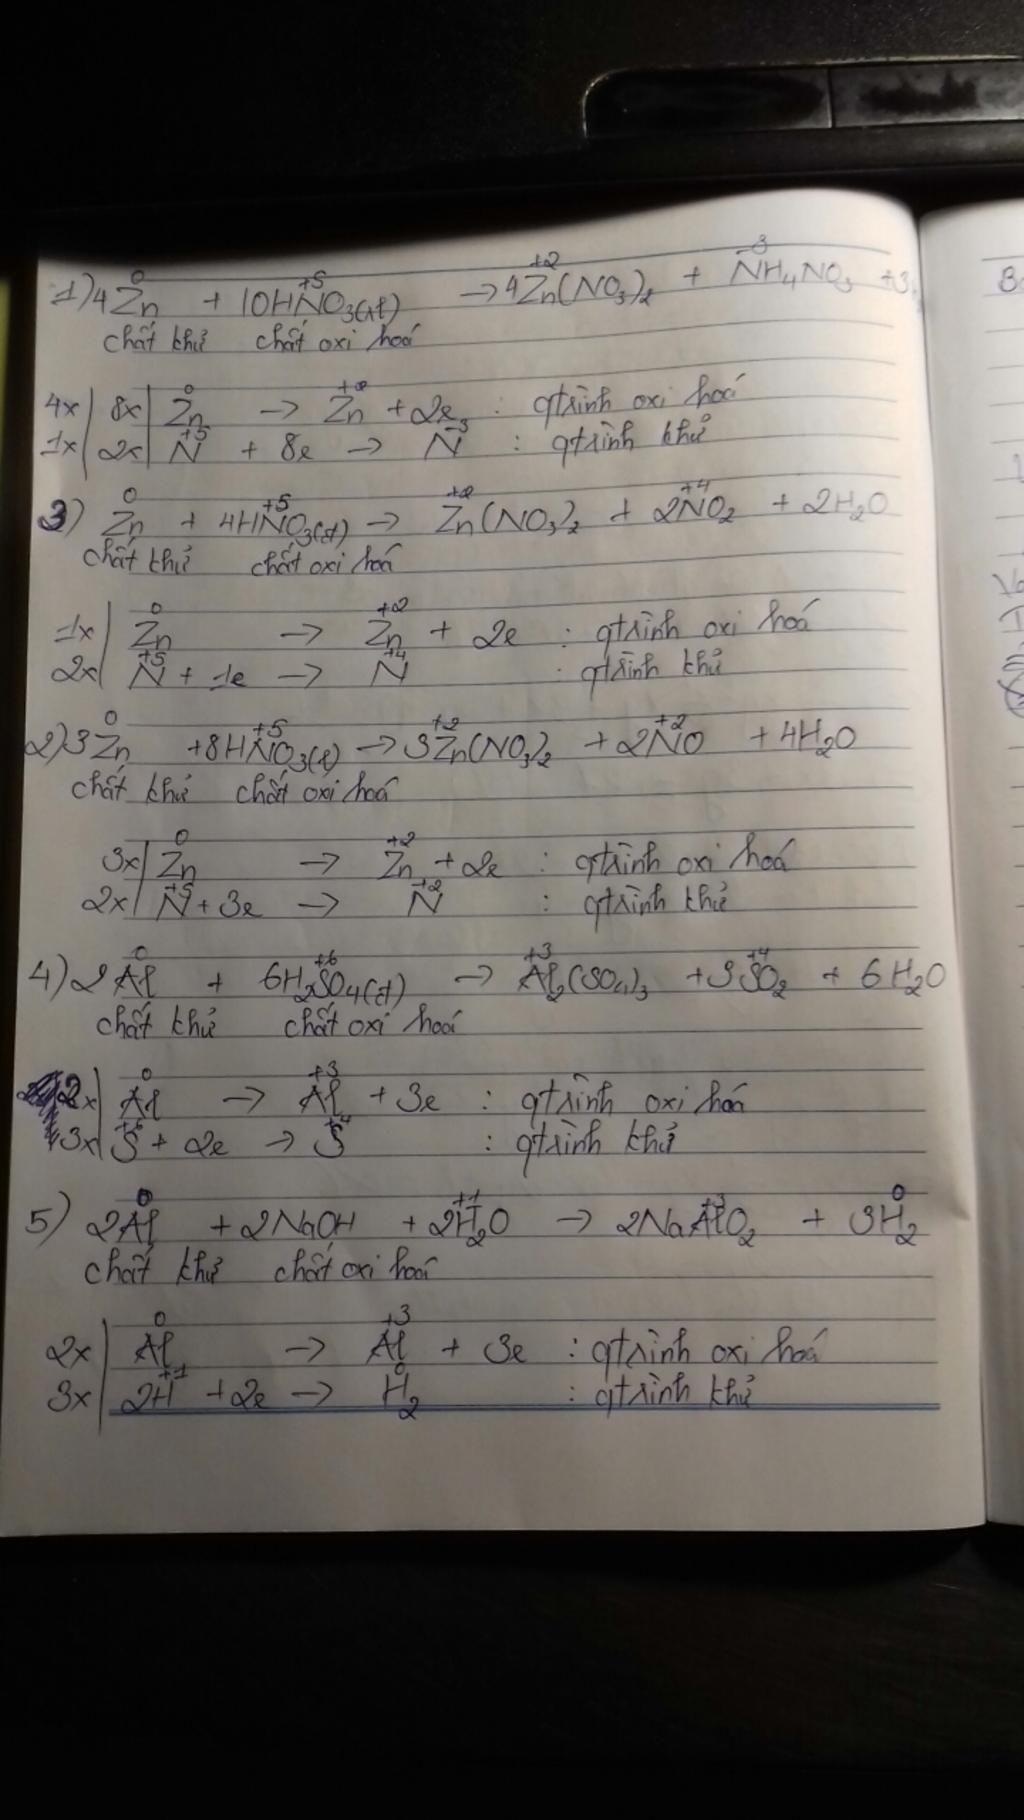 1) 4Zn⁰ + 10HN⁺⁵O₃(rất l) → 4Zn⁺²(NO₃)₂ + N⁻³H₄NO₃ + 3
chất khử chất oxi hoá
4x | 8x | Zn⁰ → Zn⁺² + 2e : qtrình oxi hoá
1x | 2x | N⁺⁵ + 8e → N⁻³ : qtrình khử
3) Zn⁰ + 4HN⁺⁵O₃(đ) → Zn⁺²(NO₃)₂ + 2N⁺⁴O₂ + 2H₂O
chất khử chất oxi hoá
1x | Zn⁰ → Zn⁺² + 2e : qtrình oxi hoá
2x | N⁺⁵ + 1e → N⁺⁴ : qtrình khử
2) 3Zn⁰ + 8HN⁺⁵O₃(l) → 3Zn⁺²(NO₃)₂ + 2N⁺²O + 4H₂O
chất khử chất oxi hoá
3x | Zn⁰ → Zn⁺² + 2e : qtrình oxi hoá
2x | N⁺⁵ + 3e → N⁺² : qtrình khử
4) 2Al⁰ + 6H₂S⁺⁶O₄(đ) → Al⁺³₂(SO₄)₃ + 3S⁺⁴O₂ + 6H₂O
chất khử chất oxi hoá
2x | Al⁰ → Al⁺³ + 3e : qtrình oxi hoá
3x | S⁺⁶ + 2e → S⁺⁴ : qtrình khử
5) 2Al⁰ + 2NaOH + 2H⁺¹₂O → 2NaAl⁺³O₂ + 3H⁰₂
chất khử chất oxi hoá
2x | Al⁰ → Al⁺³ + 3e : qtrình oxi hoá
3x | 2H⁺¹ + 2e → H⁰₂ : qtrình khử